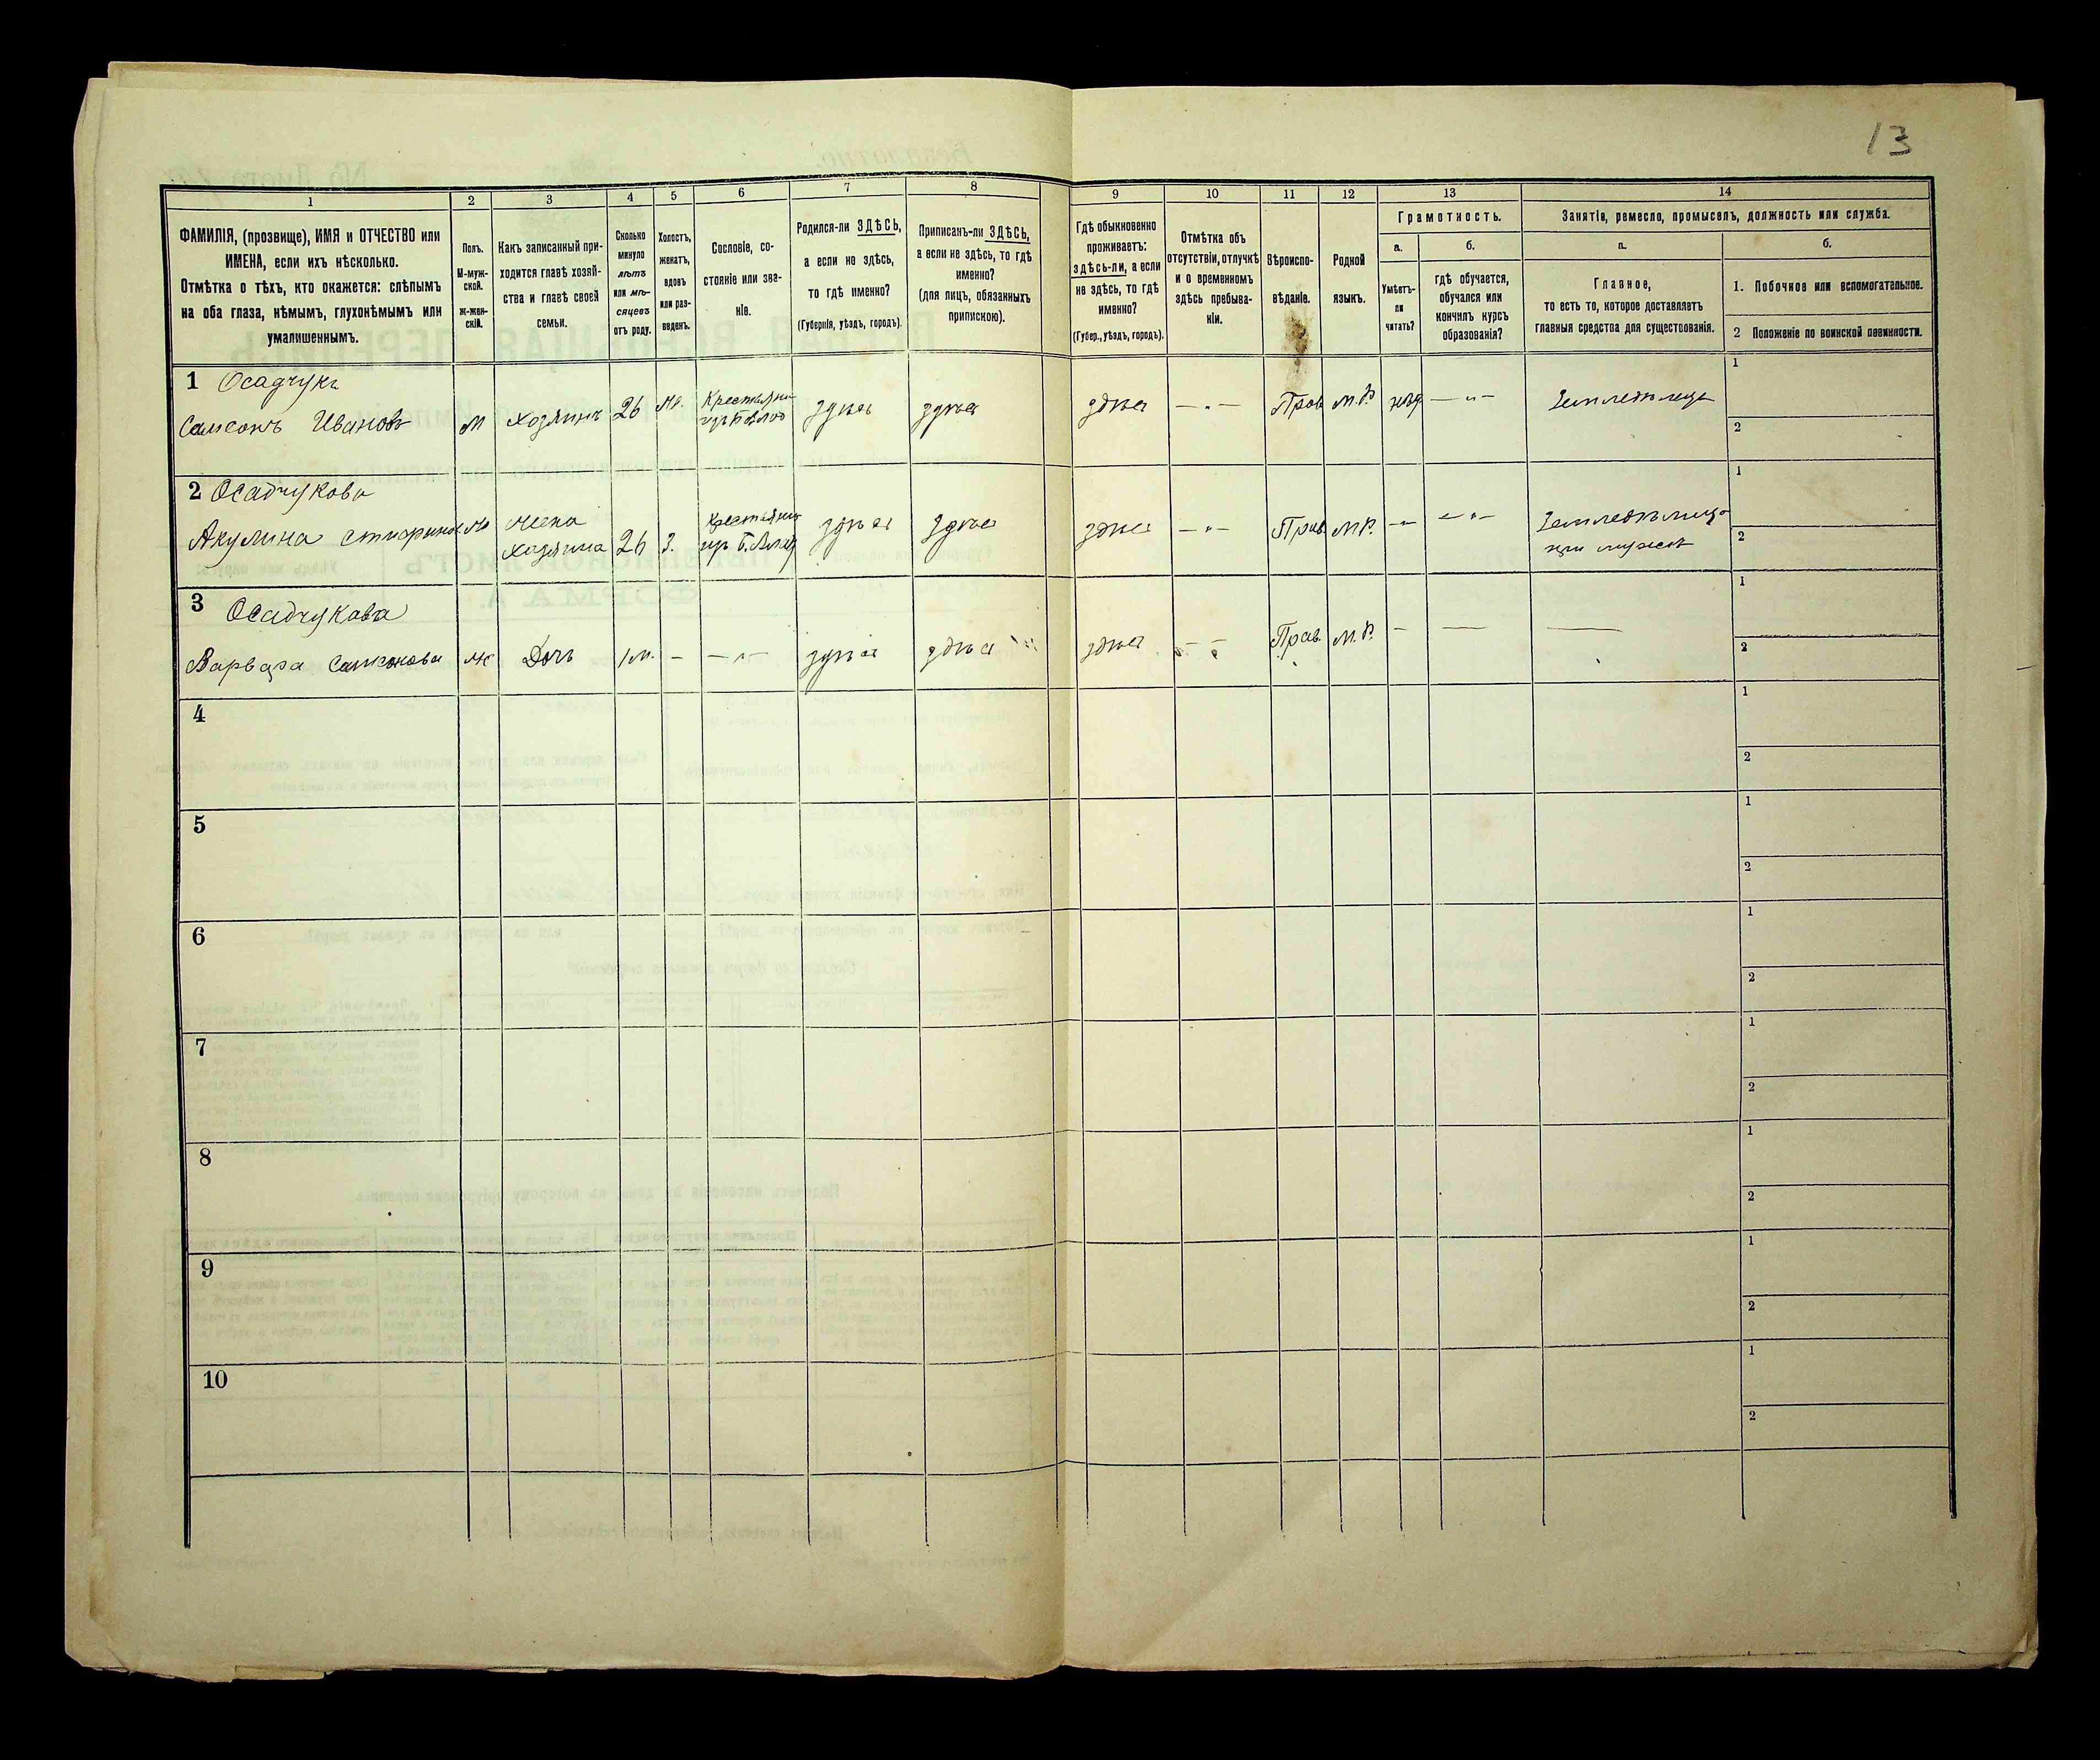 13
1
2
3
4
5
6
7
8
9
10
11
12
13
14
ФАМИЛІЯ, (прозвище), ИМЯ и ОТЧЕСТВО или
ИМЕНА, если ихъ нѣсколько.
Отмѣтка о тѣхъ, кто окажется: слѣпымъ
на оба глаза, нѣмымъ, глухонѣмымъ или
умалишеннымъ.
Полъ.
М-муж-
ской.
Ж-жен-
скій.
Какъ записанный при-
ходится главѣ хозяй-
ства и главѣ своей
семьи.
Сколько
минуло
лѣтъ
или мѣ-
сяцевъ
отъ роду.
Холостъ,
женатъ,
вдовъ
или раз-
веденъ.
Сословіе, со-
стояніе или зва-
ніе.
Родился-ли ЗДѢСЬ,
а если не здѣсь,
то гдѣ именно?
(Губернія, уѣздъ, городъ).
Приписанъ-ли ЗДѢСЬ,
а если не здѣсь, то гдѣ
именно?
(для лицъ, обязанныхъ
припискою).
Гдѣ обыкновенно
проживаетъ:
здѣсь-ли, а если
не здѣсь, то гдѣ
именно?
(Губер., уѣздъ, городъ).
Отмѣтка объ
отсутствіи, отлучкѣ
и о временномъ
здѣсь пребыва-
ніи.
Вѣроиспо-
вѣданіе.
Родной
языкъ.
Грамотность.
а.
Умѣетъ-
ли
читать?
б.
гдѣ обучается,
обучался или
кончилъ курсъ
образованія?
Занятіе, ремесло, промыселъ, должность или служба.
а.
Главное,
то есть то, которое доставляетъ
главныя средства для существованія.
б.
1. Побочное или вспомогательное.
2 Положеніе по воинской повинности.
1 Осадчукъ
Самсонъ Ивановъ
М
Хозяинъ
26
Крестьянин
здѣсь
здѣсь
здѣсь
— „ —
Прав
М.Р.
нѣт
— „ —
Земледѣлецъ
1
2
2 Осадчукова
Акулина
жена
хозяина
26
З.
здѣсь
здѣсь
здѣсь
— „ —
Прав.
М.Р.
—
— „ —
1
2
3 Осадчукова
Варвара Самсонова
Ж
Дочь
1м.
—
— „ —
здѣсь
здѣсь
здѣсь
— —
Прав.
М.Р.
—
—
—
1
2
4
1
2
5
1
2
6
1
2
7
1
2
8
1
2
9
1
2
10
1
2